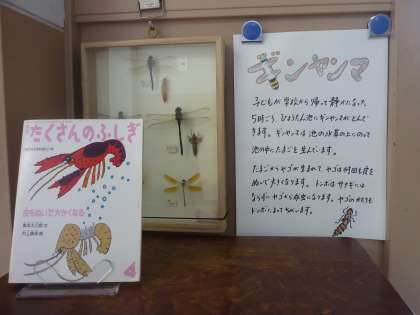 たくさんのふしぎ
皮をぬいで大きくなる
4
ギンヤンマ
子どもが学校から帰って静かになった
5時ごろ、ひょうたん池にギンヤンマがとんで
きます。ギンヤンマは池の水草の上にのって
池の中にたまごを生んでいます。
たまごからヤゴが生まれて、ヤゴは何回も皮を
ぬいで大きくなります。トンボはサナギには
ならずにヤゴから成虫になります。ヤゴのかたちも
トンボににまってちがいます。